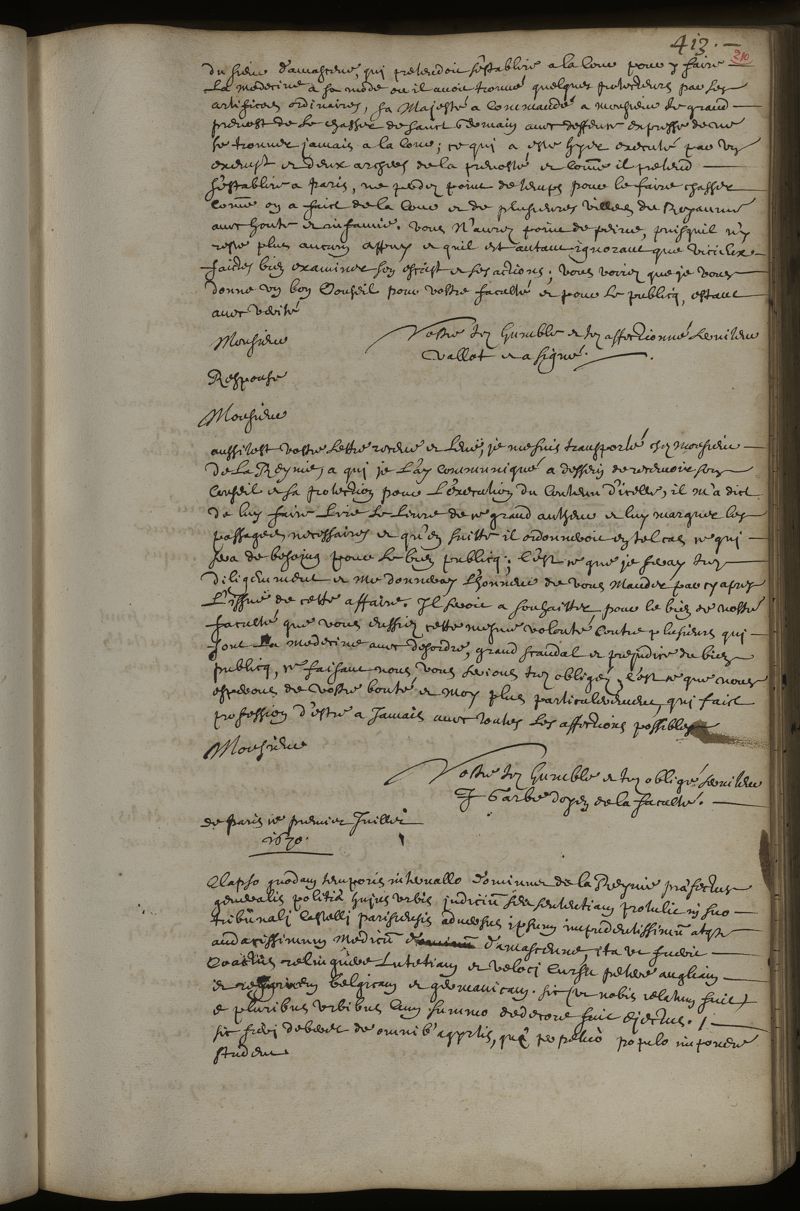 413.
210
du sieur d'amascene, qui pretendoit s'establir a la Cour pour y faire
La medecine a sa mode ou il avoit trouvé quelques protecteurs par ses
artifices ordinaires, sa Majesté a Commandé a monsieur le grand
prevost de le chasser de sainct Germain avec deffence expresse de ne
se trouver jamais a la Cour; ce qui a esté hyer executé par un
exempt et deux archers de la prevosté et Comme il pretend
s'establir a Paris, ne perdez point de temps pour le faire chasser
Comme on a faict de la Cour et de plusieurs villes du Royaume
avec honte et infamie. Vous n'aurez point de peine, puisquil n'y
reste plus aucun appuy et quil est autant ignorant que vicieux
faictes bien examiner son escrit et ses actions; vous voirez que je vous
donne un bon Conseil pour vostre faculté et pour le publicq, estant
avec verité
Monsieur
Vostre tres humble et tres affectionné serviteur
Vallot et a signé.
Response
Monsieur
aussitost vostre Lettre receue et Leue, je me suis transporté chez Monsieur
de la Reynie, a qui je l'ay Communiqué a dessein de recevoir son
Conseil et sa protection pour l'execution du Contenu d'icelle, il m'a dict
de luy faire Livre de ce grand autheur et luy marquer les
passages necessaires et qu'en suitte il ordonneroit en tel cas ce qui
sera de besoing pour le bien publicq; C'est ce que je feray tres
diligemment et me donneray L'honneur de vous Mander par cy apres
L'issue de cette affaire. Il seroit a souhaitter pour le bien de nostre
faculté que vous eussiez cette mesme volonté Contre plusieurs qui
font La medecine avec desordre, grand scandal et prejudice du bien
publicq, ce faisant nous vous serions tres obligez, C'est ce que nous
esperons de vostre bonté et Moy plus particulierement, qui faict
profession d'estre a Jamais avec toutes Les affections possibles
Monsieur
Vostre tres humble et tres obligé serviteur
J Garbe doyen de la faculté.
de Paris ce premier Juillet
1670.
Elapso quodam temporis intervallo Dominus de la Reynie praefectus
generalis politiae hujus urbis judicium seu sententiam protulit in suo
tribunali Castelli parisiensis adversus ipsum impudentissimum atque
audacissimum Medicum d'amascenne, ita ut fuerit
Coactus relinquere Lutetiam et veloci Cursu petere angliam
et regionem belgicam et germanicam. sic (ut nobis relatum fuit)
e pluribus urbibus Cum summo dedecore fuit ejectus. /
sic fieri deberet de omnib' agyrtis, qui perpetuo populo imponere
student